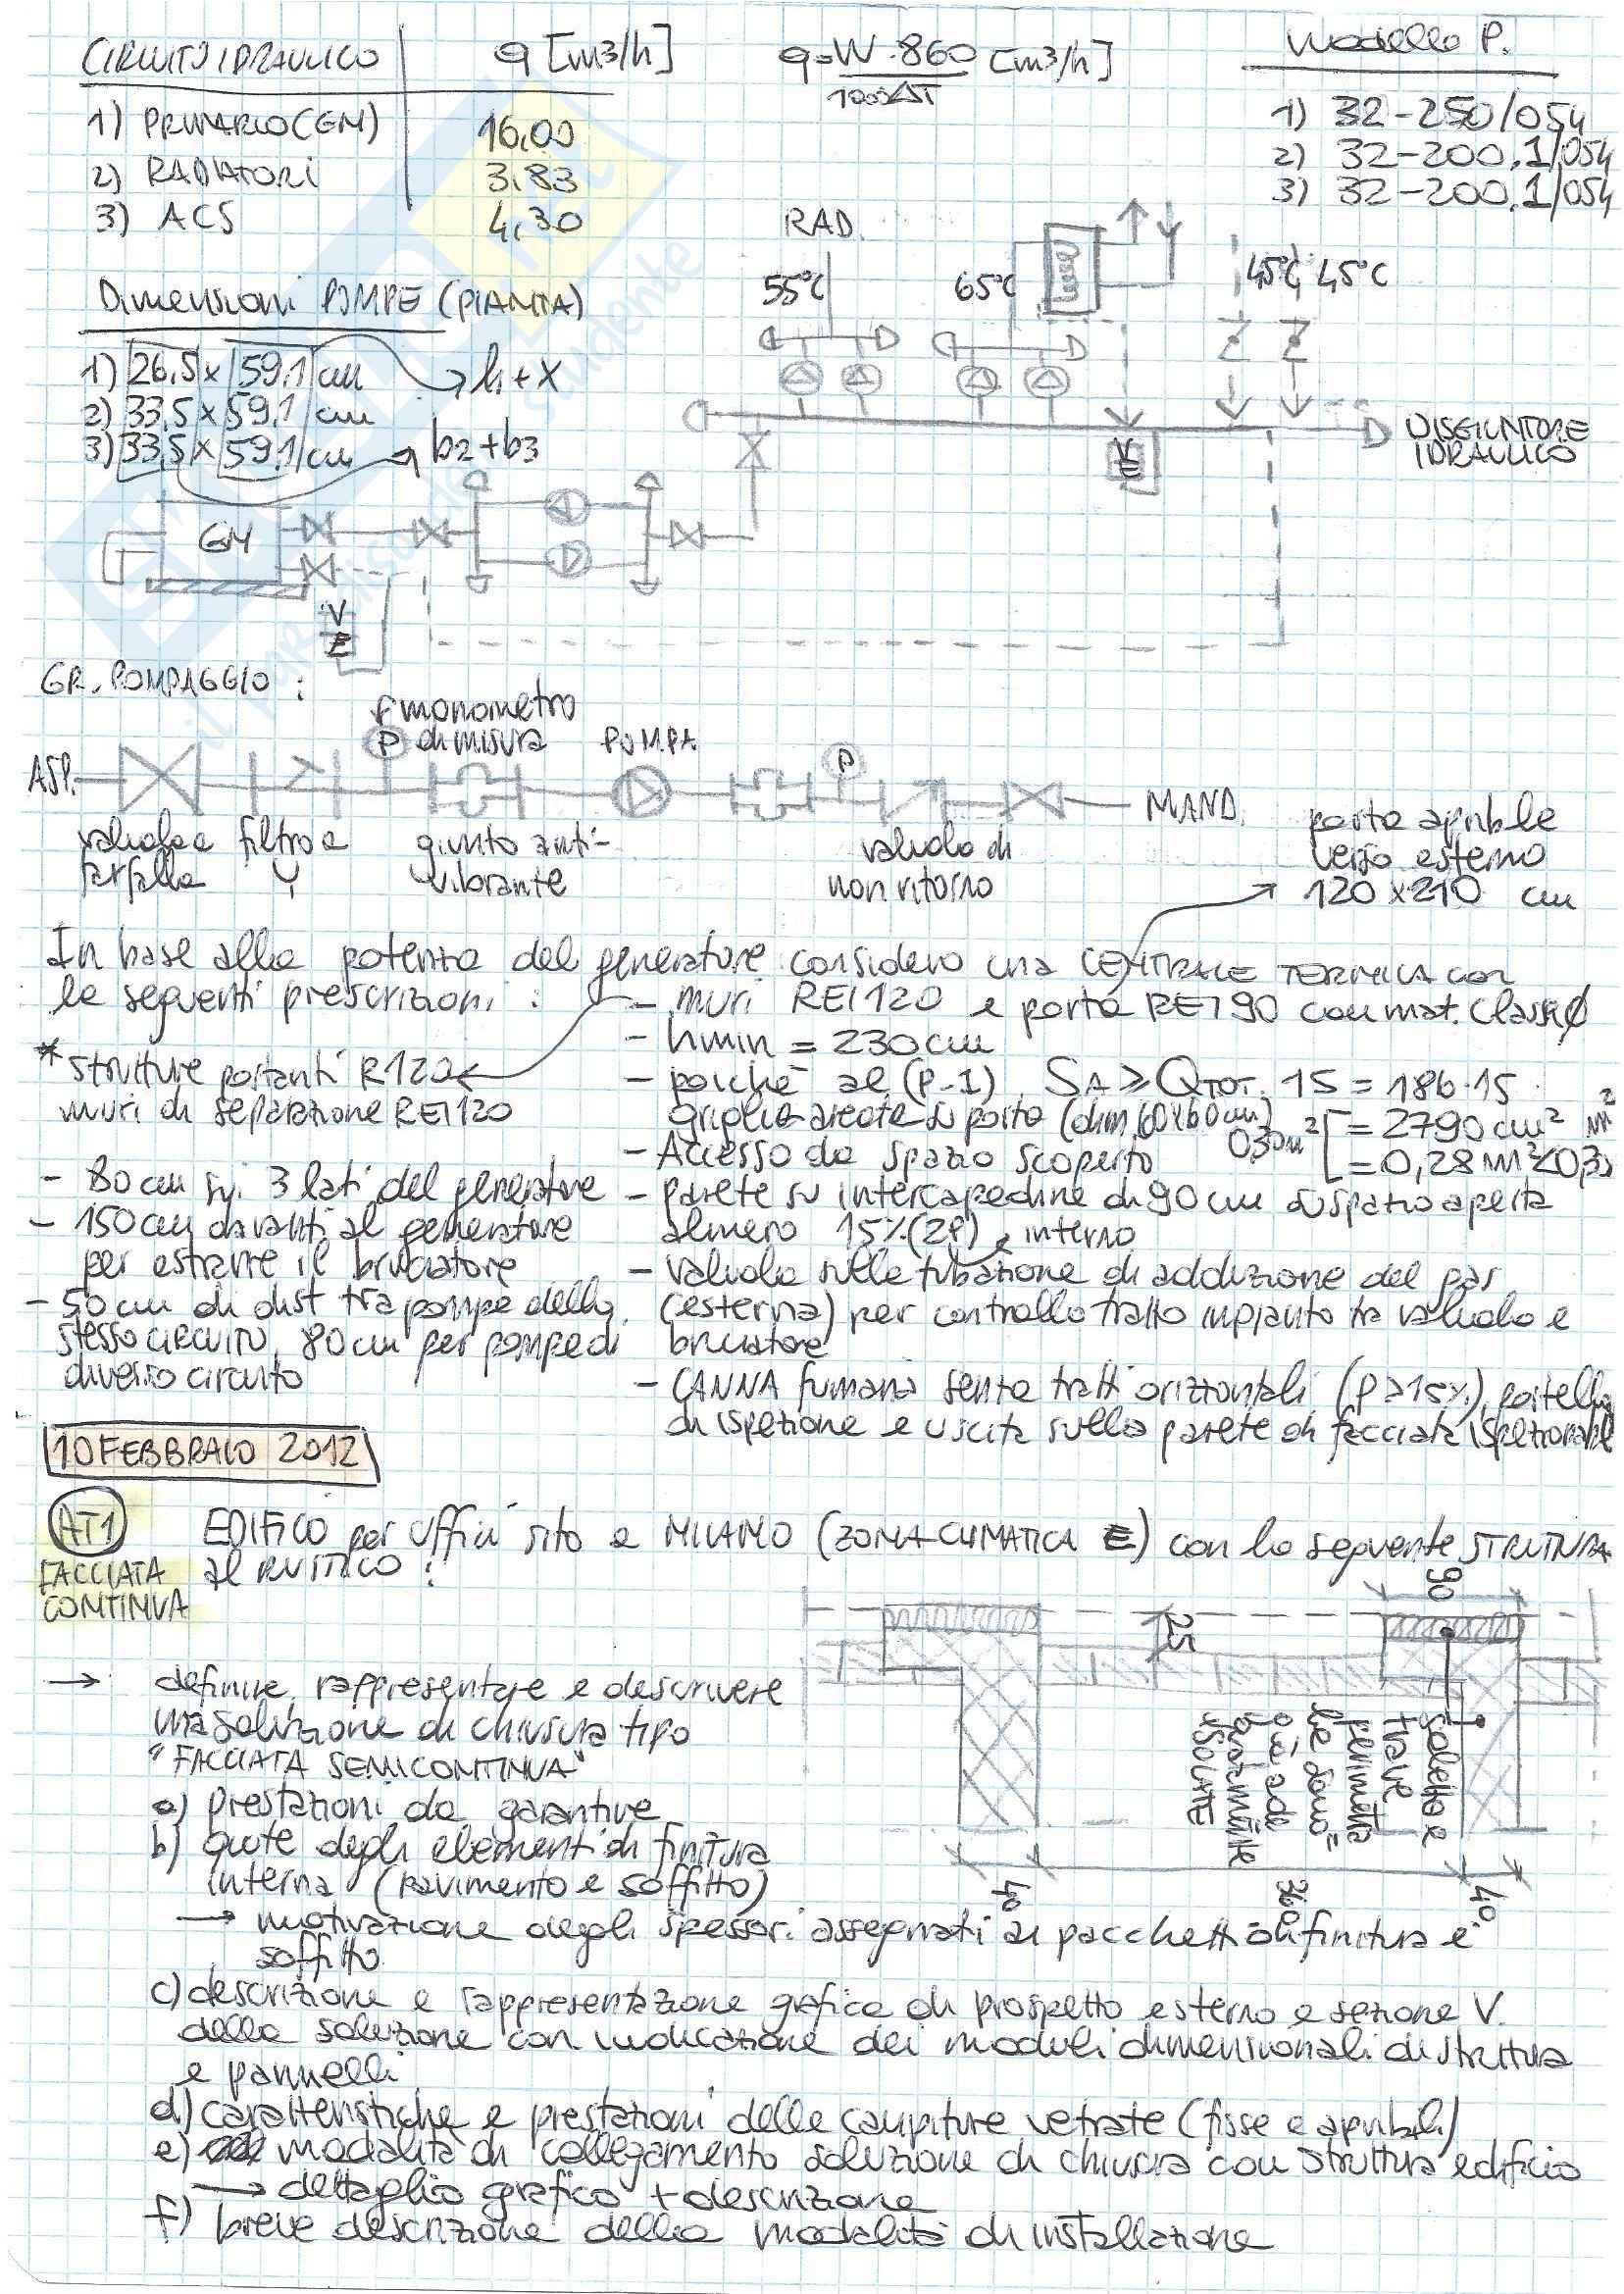 CIRCUITO IDRAULICO q [m3/h] q=W·860/1000ΔT [m3/h] Modello P.
1) PRIMARIO (GM) 16,00 1) 32-250/054
2) RADIATORI 3,83 2) 32-200.1/054
3) ACS 4,30 3) 32-200.1/054
RAD.
55°C 65°C 45°C 45°C
Dimensioni POMPE (PIANTA)
1) 26,5 x 59,1 cm → h1 + X
2) 33,5 x 59,1 cm
3) 33,5 x 59,1 cm → b2+b3
DISGIUNTORE
IDRAULICO
VE
GM
VE
GR. POMPAGGIO :
manometro
di misura
P
POMPA
P
ASP.
MAND.
valvola a farfalla
filtro a Y
giunto anti-vibrante
valvola di non ritorno
porta apribile
verso esterno
120 x 210 cm
In base alla potenza del generatore considero una CENTRALE TERMICA con
le seguenti prescrizioni :
- muri REI 120 e porta REI 90 con mat. Classe Ø
- hmin = 230 cm
* strutture portanti R120
muri di separazione REI 120
- poiché al (P-1) SA ≥ QTOT. 15 = 186·15
griglia areata su porta (dim 60x60 cm) 0,30m² = 2790 cm²
= 0,28 m² < 0,3
- Accesso da spazio scoperto
- 80 cm sui 3 lati del generatore
- 150 cm davanti al generatore
per estrarre il bruciatore
- 50 cm di dist tra pompe dello
stesso CIRCUITO, 80 cm per pompe di
diverso circuito
- parete su intercapedine di 90 cm su spazio aperta
almeno 15% (2P) e interno
- valvola sulle tubazione di adduzione del gas
(esterna) per controllo tratto impianto tra valvola e
bruciatore
- CANNA fumaria senza tratti orizzontali (P≥15%), portello
di ispezione e uscita sulla parete di facciata ispezionabile
10 FEBBRAIO 2012
AT1
FACCIATA
CONTINUA
EDIFICO per uffici sito a MILANO (ZONA CLIMATICA E) con la seguente STRUTTURA
al RUSTICO :
90
25
soletta e
trave
perimetra
le sono
già ade
guatamente
ISOLATE
40 360 40
→ definire, rappresentare e descrivere
una soluzione di chiusura tipo
"FACCIATA SEMICONTINUA"
a) prestazioni da garantire
b) quote degli elementi di finitura
interna (pavimento e soffitto)
→ motivazione degli spessori assegnati ai pacchetti di finitura e
soffitto
c) descrizione e rappresentazione grafica di prospetto esterno e sezione V.
della soluzione con indicazione dei moduli dimensionali di struttura
e pannelli
d) caratteristiche e prestazioni delle campiture vetrate (fisse e apribili)
e) modalità di collegamento soluzione di chiusura con struttura edificio
→ dettaglio grafico + descrizione
f) breve descrizione della modalità di installazione